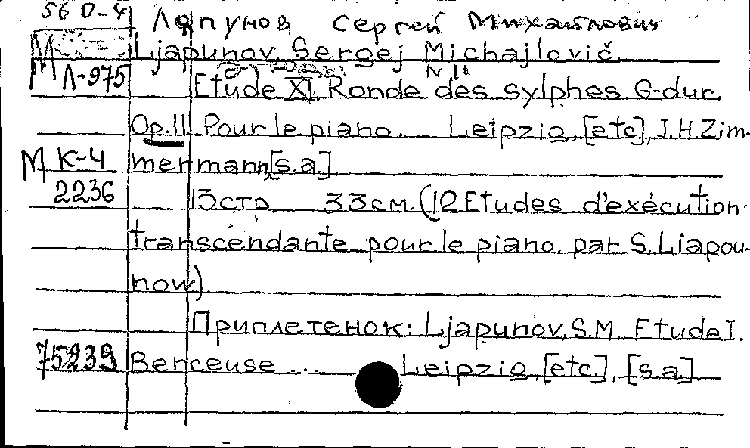 56 D-4 Ляпунов Сергей Михайлович
М Ljapunov, Sergej Michajlovič.
М Л-975 Etude XI. Ronde des sylphes G-dur.
Op.11 Pour le piano ... Leipzig, [etc], J.H.Zim-
М К-4 mermann, [s.a]
2236 13 стр 33 см. (12 Etudes d'exécution
transcendante pour le piano par S. Liapou-
now)
Приплетенок: Ljapunov, S.M. Etude I.
75239 Berceuse ... Leipzig, [etc.], [s.a]